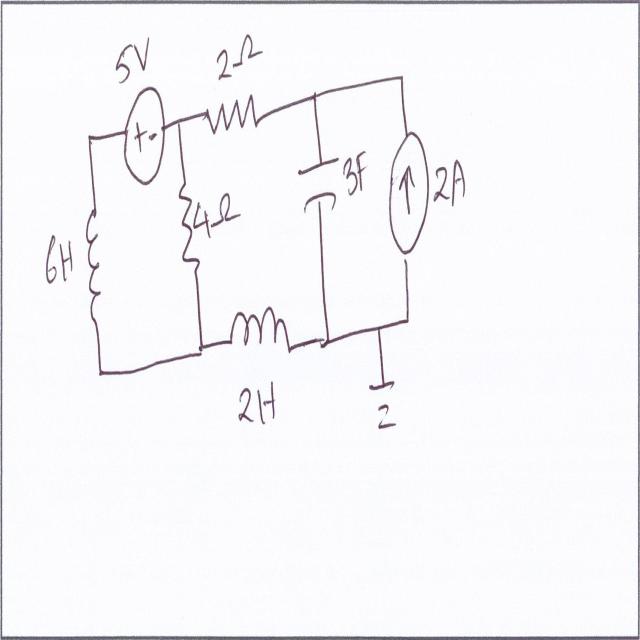 5V
2Ω
+-
3F
2A
4Ω
6H
2H